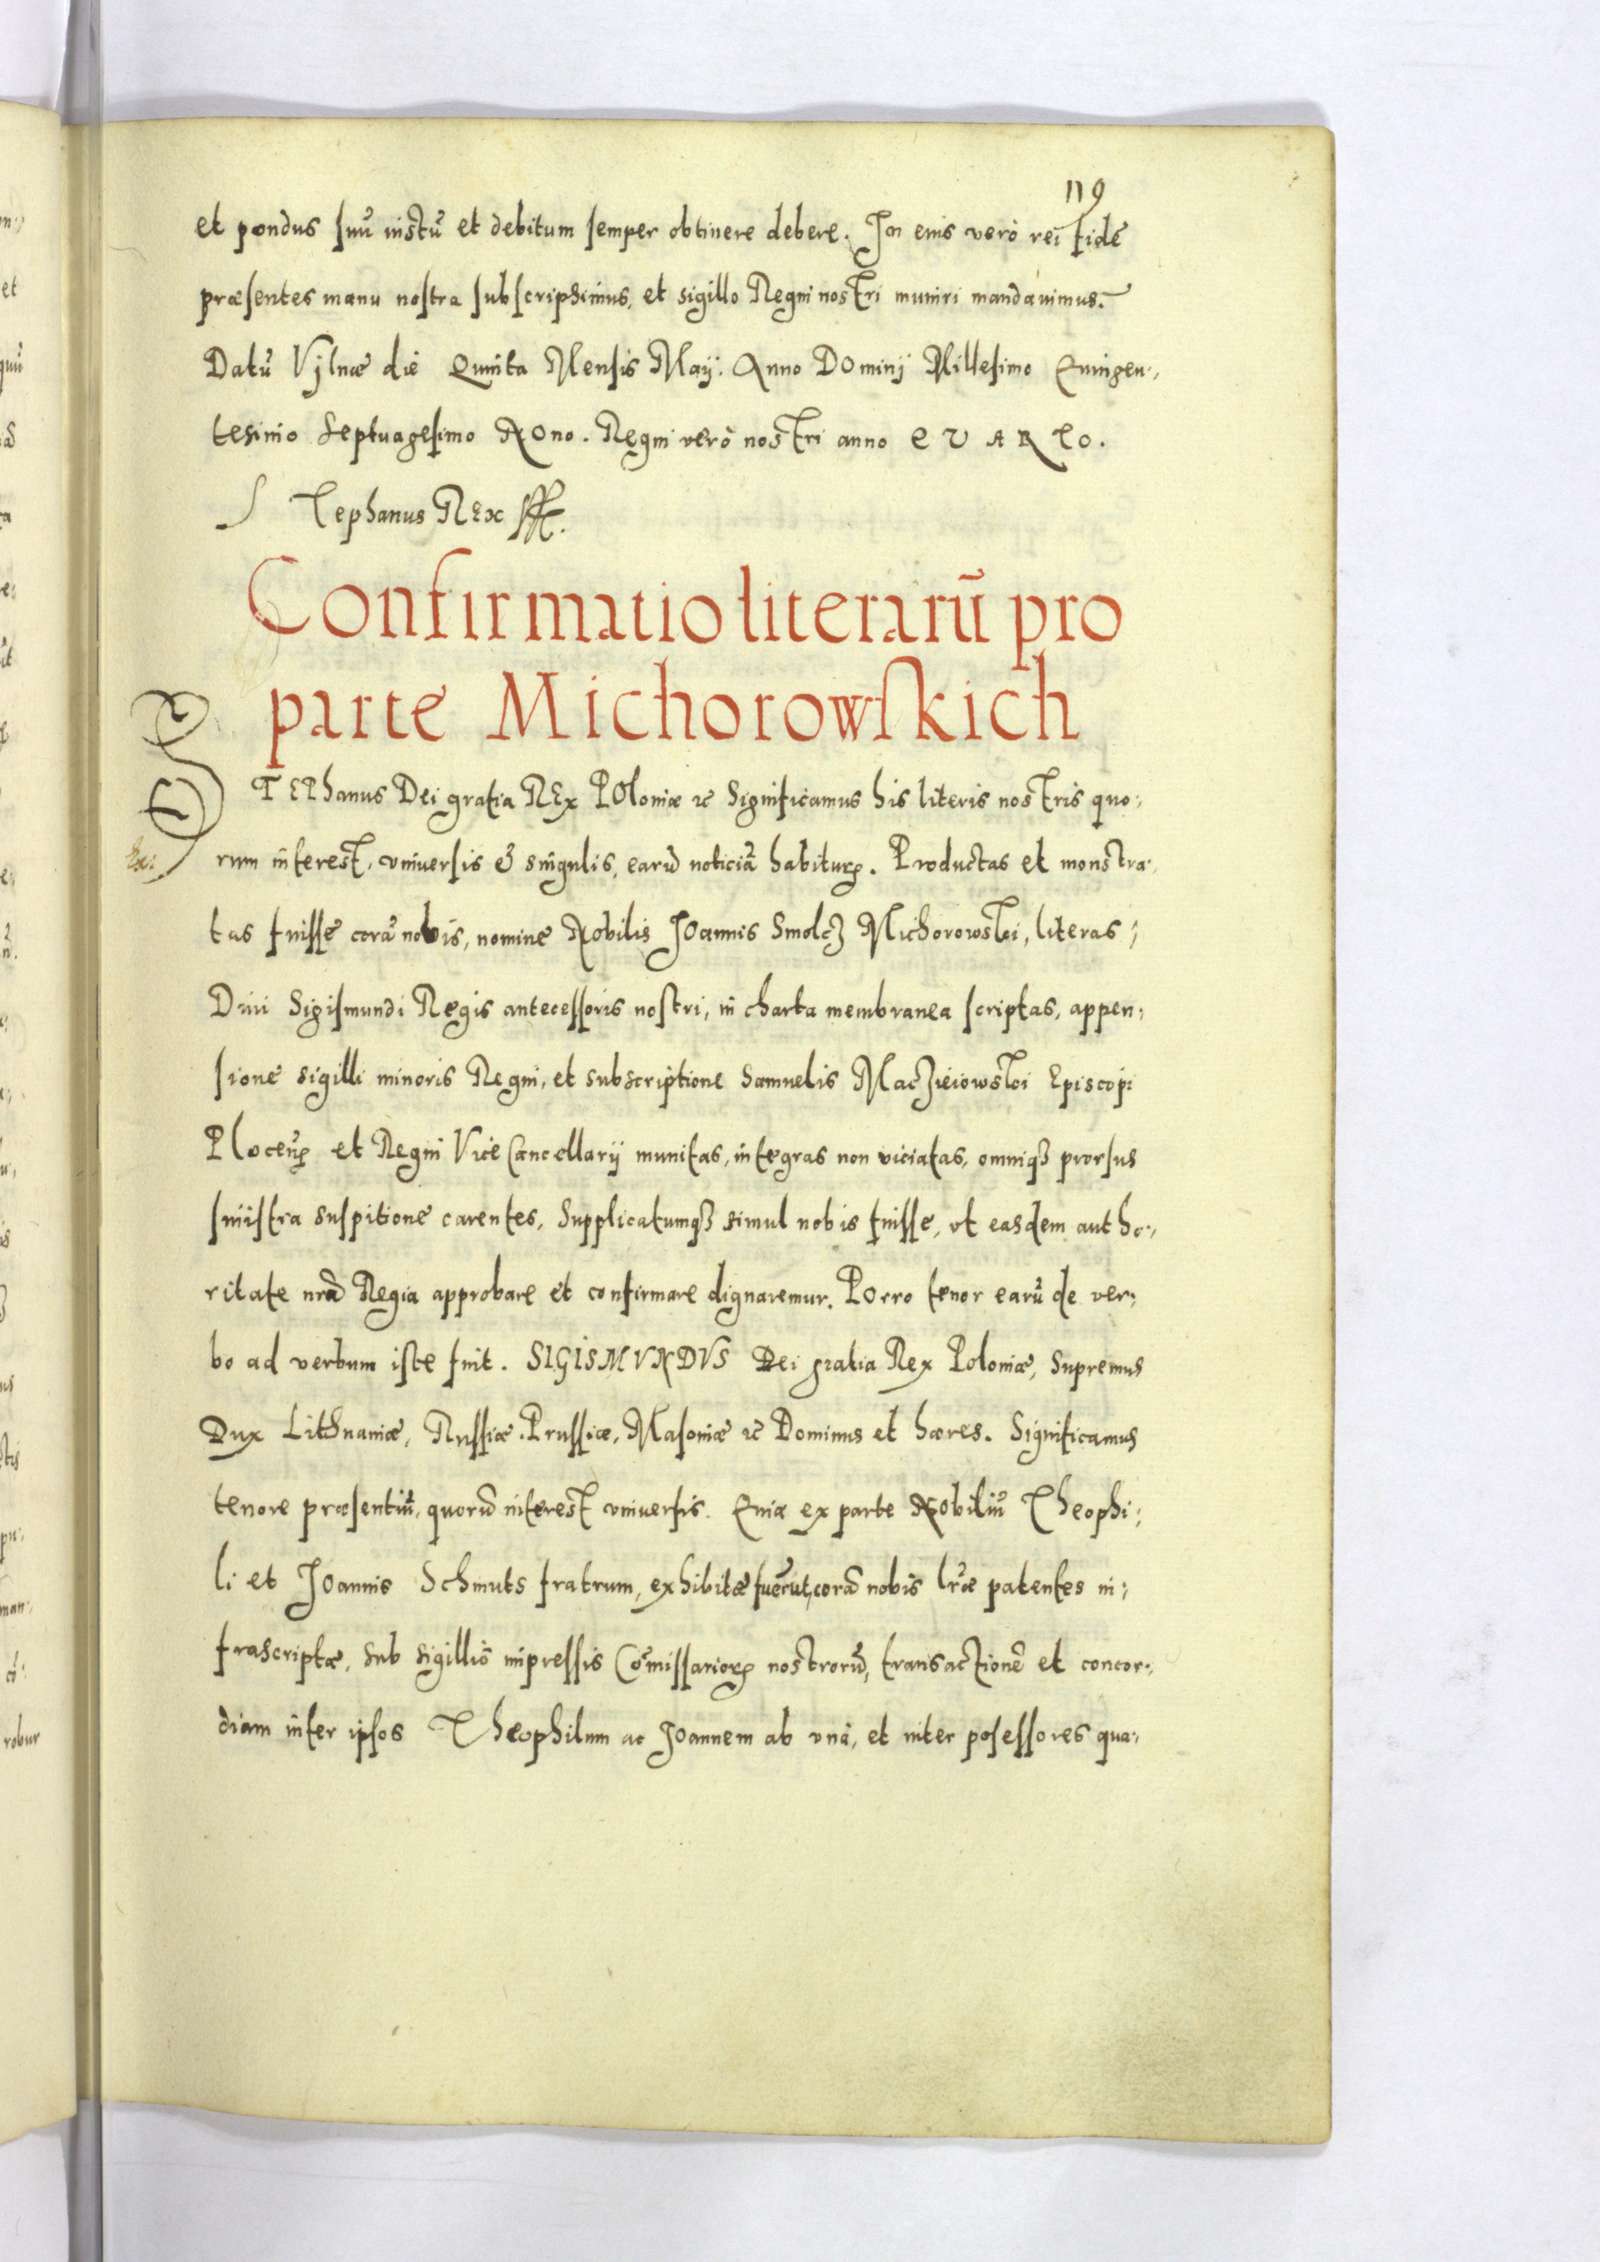 119
et pondus suũ iustũ et debitum semper obtinere debere. In eius verò rei fidẽ
præsentes manu nostra subscripsimus, et sigillo Regni nostri muniri mandauimus.
Datũ Vylnæ die Quinta Mensis Maij. Anno Dominj Millesimo Quingen-
tesimo Septuagesimo Nono. Regni verò nostri anno QVARTO.
STephanus REX
Confirmatio literarũ pro
parte Michorowskich
STEPhanus Dei gratia REx POloniæ ꝛc Significamus his literis nostris quo-
rum interest, vniuersis & singulis, earũ noticiã habituꝝ. Productas et monstra-
tas fuisse corã nobis, nomine Nobilis Joannis Smolcz Michorowski, literas
Diui Sigismundi Regis antecessoris nostri, in charta membranea scriptas, appen-
sione sigilli minoris Regni, et subscriptione Samuelis Maczieiowski Episcopi
Ploceñ et Regni Vice Cancellarij munitas, integras non viciatas, omniqꝫ prorsus
sinistra suspitione carentes, Supplicatumqꝫ simul nobis fuisse, vt easdem autho-
ritate nrã Regia approbare et confirmare dignaremur. Porro tenor earũ de ver-
bo ad verbum iste fuit. SIGISMVNDVS Dei gratia Rex Poloniæ, Supremus
Dux Lithuaniæ, Russiæ, Prussiæ, Masoniæ ꝛc Dominus et hæres. Significamus
tenore præsentiũ, quorũ interest vniuersis. Quia ex parte Nobiliũ Theophi-
li et Joannis Schmuts fratrum, exhibitæ fuerũt, corã nobis lrẽ patentes in-
frascriptæ, sub sigillis impressis Cõmissarioꝝ nostrorũ, transactionẽ et concor-
diam inter ipsos Theophilum ac Joannem ab vnà, et inter posessores qua-